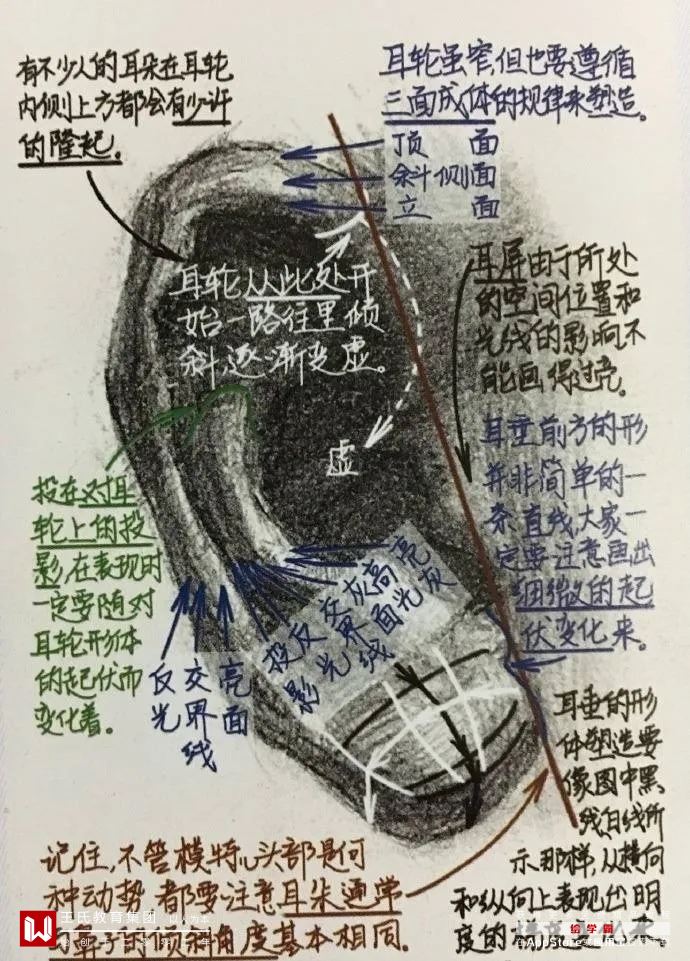 有不少人的耳朵在耳轮
内侧上方都会有少许
的隆起。
耳轮虽窄,但也要遵循
三面成体的规律来塑造。
顶面
斜侧面
立面
耳轮从此处开
始一路往里倾
斜,逐渐变虚。
虚
耳屏由于所处
的空间位置和
光线的影响不
能画得过亮。
耳垂前方的形
并非简单的一
条直线,大家一
定要注意画出
细微的起
伏变化来。
投在对耳
轮上的投
影,在表现时
一定要随对
耳轮形体
的起伏而
变化着。
反光
交界线
亮面
投影
反光
交界线
灰面
高光
亮灰
耳垂的形
体塑造要
像图中黑
线白线所
示那样,从横向
和纵向上表现出明
度的
记住,不管模特儿头部是何
种动势都要注意耳朵通常
与鼻子的倾斜角度基本相同。
王氏教育集团
以人为本
绘学霸
在AppStore或